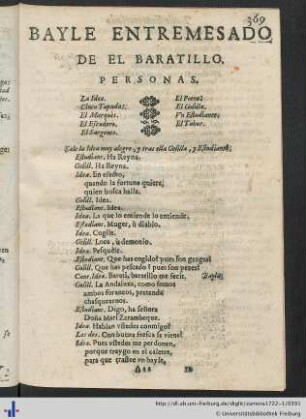 369
BAYLE ENTREMESADO
DE EL BARATILLO.
PERSONAS.
La Idea.
Cinco Tapadas;
El Marquès.
El Escudero.
El Sargento.
El Poeta;
El Golilla.
Vn Estudiante;
El Tahur.
Sale la Idea muy alegre, y tras ella Golilla, y Estudiante;
Estudiant. Ha Reyna.
Golill. Ha Reyna.
Idea. En efecto,
quando la fortuna quiere,
quien busca halla.
Golill. Idea.
Estudiant. Idea.
Idea. La que lo entiende lo entiende.
Estudiant. Muger, ù diablo.
Idea. Cogile.
Golill. Loca, ù demonio.
Idea. Pesquéle.
Estudiant. Que has cogido? pues son gangas?
Golill. Que has pescado? pues son pezes?
Cant. Idea. Barati, baratillo me fecit.
Golill. La Andaluza, como somos
ambos forancos, pretende
chasquearnos.
Estudiant. Digo, ha señora
Doña Mari Zarambeque.
Idea. Hablan vstedes conmigo?
Los dos. Con buena fresca se viene!
Idea. Pues vstedes me perdonen,
porque traygo en el caletre,
para que
en bayle,
http://dl.ub.uni-freiburg.de/diglit/zamora1722-1/0395
© Universitätsbibliothek Freiburg